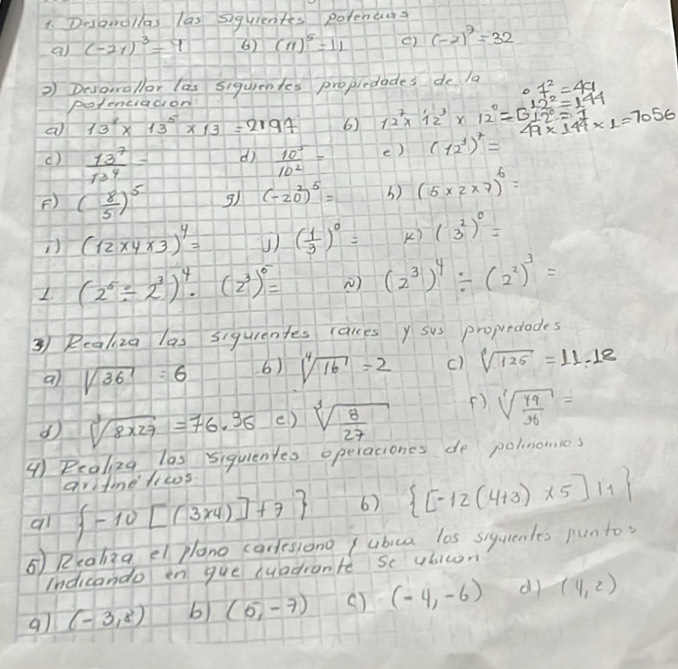 1. Desarrollas las siguientes potencias
a) (-21)³ = 9 b) (11)⁵ = 11 c) (-2)³ = 32
2) Desarrollar las siguientes propiedades de la
potenciacion:
7² = 49
12² = 144
12⁰ = 1
49 × 144 × 1 = 7056
a) 13² × 13⁵ × 13 = 2197 b) 12² × 12³ × 12⁰ =
c) 13⁷/13⁴ = d) 10⁵/10² = e) (12³)² =
F) (8/5)⁵ g) (-20²)⁵ = h) (5 × 2 × 7)⁶ =
i) (12 × 4 × 3)⁴ = J) (1/3)⁰ = K) (3²)⁰ =
1. (2⁵ ÷ 2³)⁴ · (2³)⁵ = N) (2³)⁴ ÷ (2²)³ =
3) Realiza las siguientes raices y sus propiedades
a) √36 = 6 b) ⁴√16 = 2 c) √125 = 11.18
d) ³√8×27 = 76.36 e) ³√8/27 F) √49/36 =
4) Realiza las siguientes operaciones de polinomios
aritmeticos
a) {-10 [(3×4)] + 7} b) {[-12 (4+3) × 5] 11}
5) Realiza el plano cartesiano y ubica los siguientes puntos
indicando en que cuadrante se ubican
a) (-3,8) b) (5,-7) c) (-4,-6) d) (4,2)